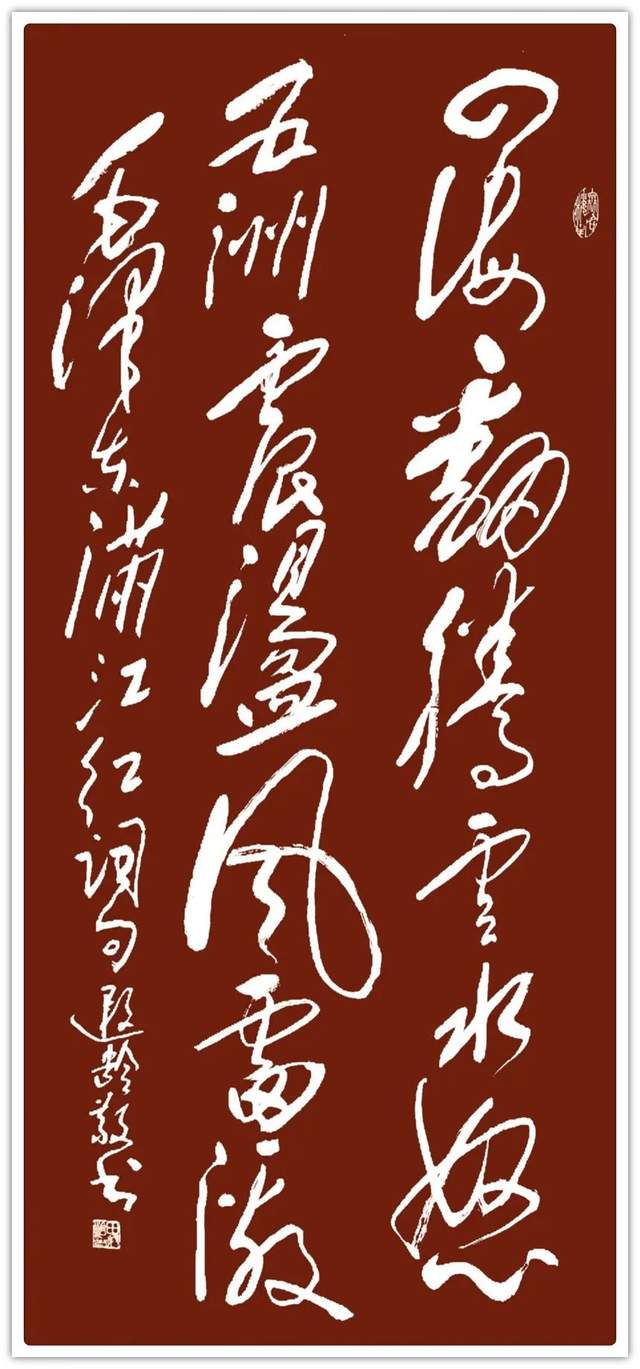 四海翻腾雲水怒
五洲震盪风雷激
毛泽东满江红词句遐龄敬书